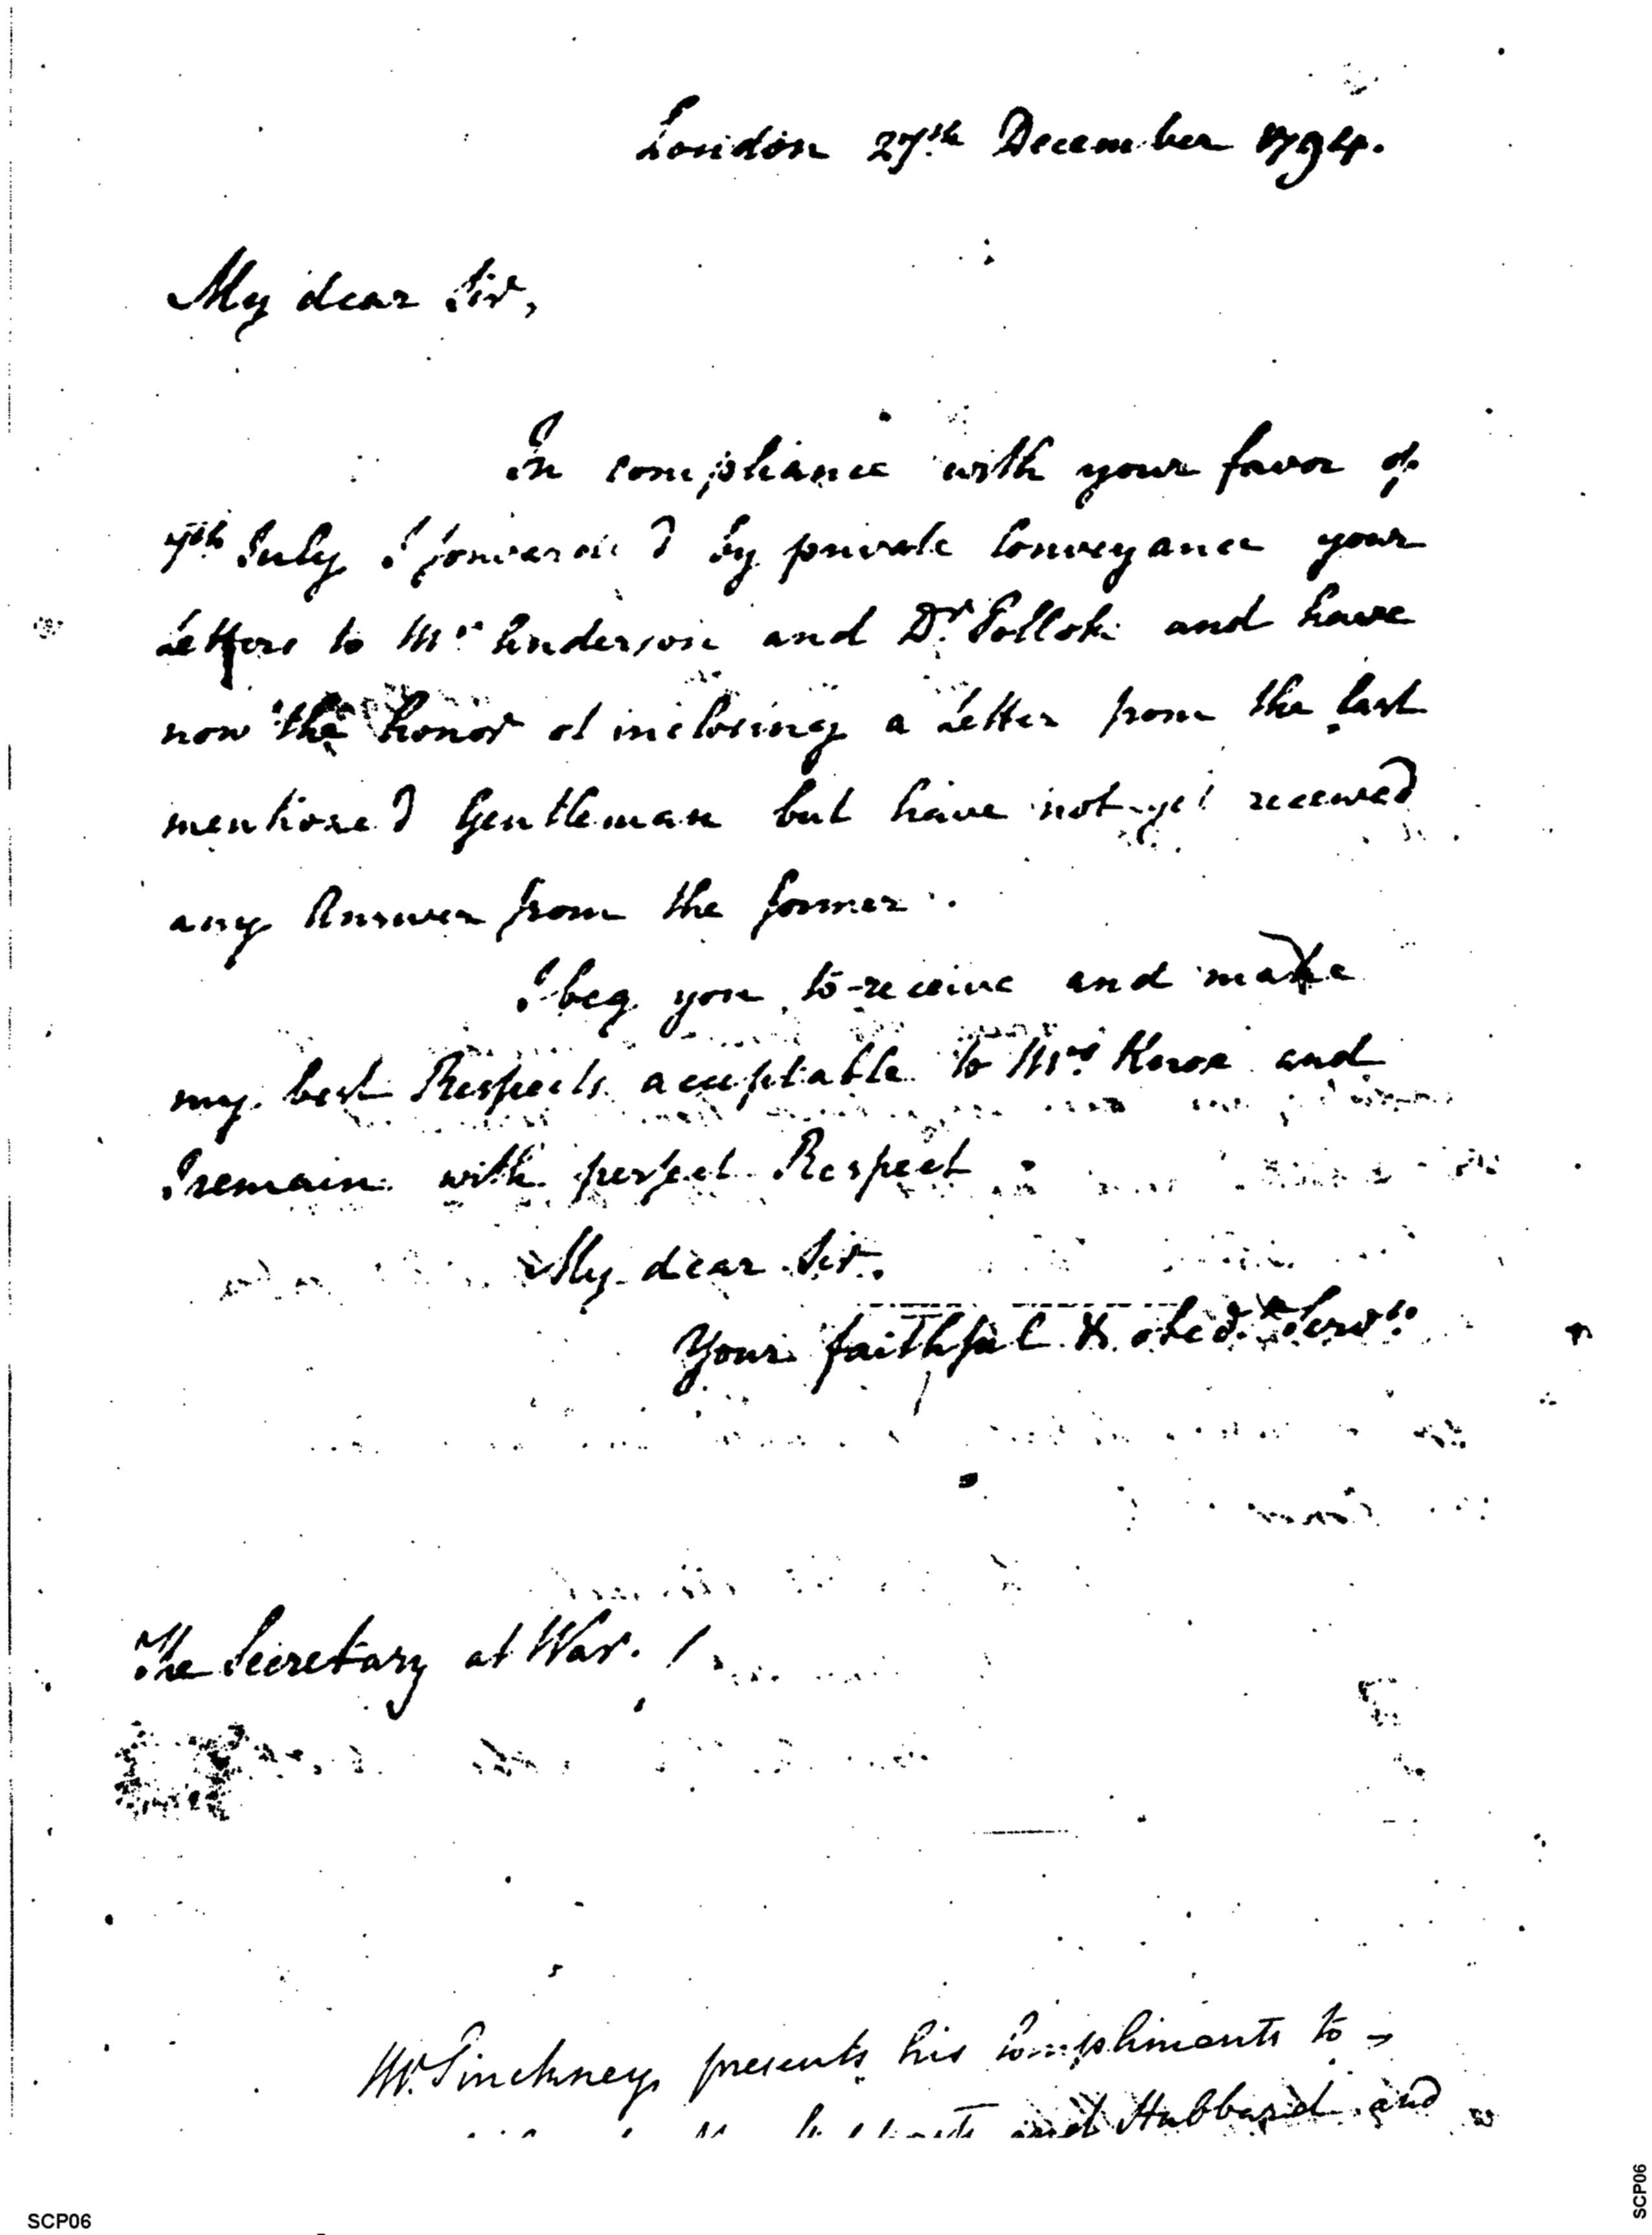 London 27th December 1794.
My dear Sir,
In compliance with your favor of
7th July I forwarded by private Conveyance your
Letters to Mr Anderson and Dr Pollok and have
now the honor of inclosing a Letter from the last
mentioned Gentleman but have not yet received
any Answer from the former.
I beg you to receive and make
my best Respects acceptable to Mrs Knox and
I remain with perfect Respect
My dear Sir.
Your faithful & obedt Servt
The Secretary at War.
Mr Pinckney presents his Compliments to
and Hubbard and
SCP06
SCP06